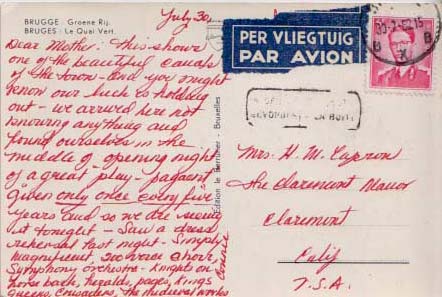 BRUGGE : Groene Rij.
BRUGES : Le Quai Vert.
July 30,
Dear Mother: This shows
one of the beautiful canals
of the town - and you might
know our luck is holding
out - we arrived here not
knowing anything and
found ourselves in the
middle of opening night
of a great play - pageant
given only once every five
years and so we are seeing
it tonight - Saw a dress
rehersal last night - Simply
magnificent, 300 voice choir,
Symphony orchestra - Knights on
horse back, heralds, pages, Kings
Queens, Crusaders, the medieval works
Connie
Edition le Berrurier - Bruxelles
PER VLIEGTUIG
PAR AVION
B B
Mrs. H. M. Capron
The Claremont Manor
Claremont
Calif
U.S.A.